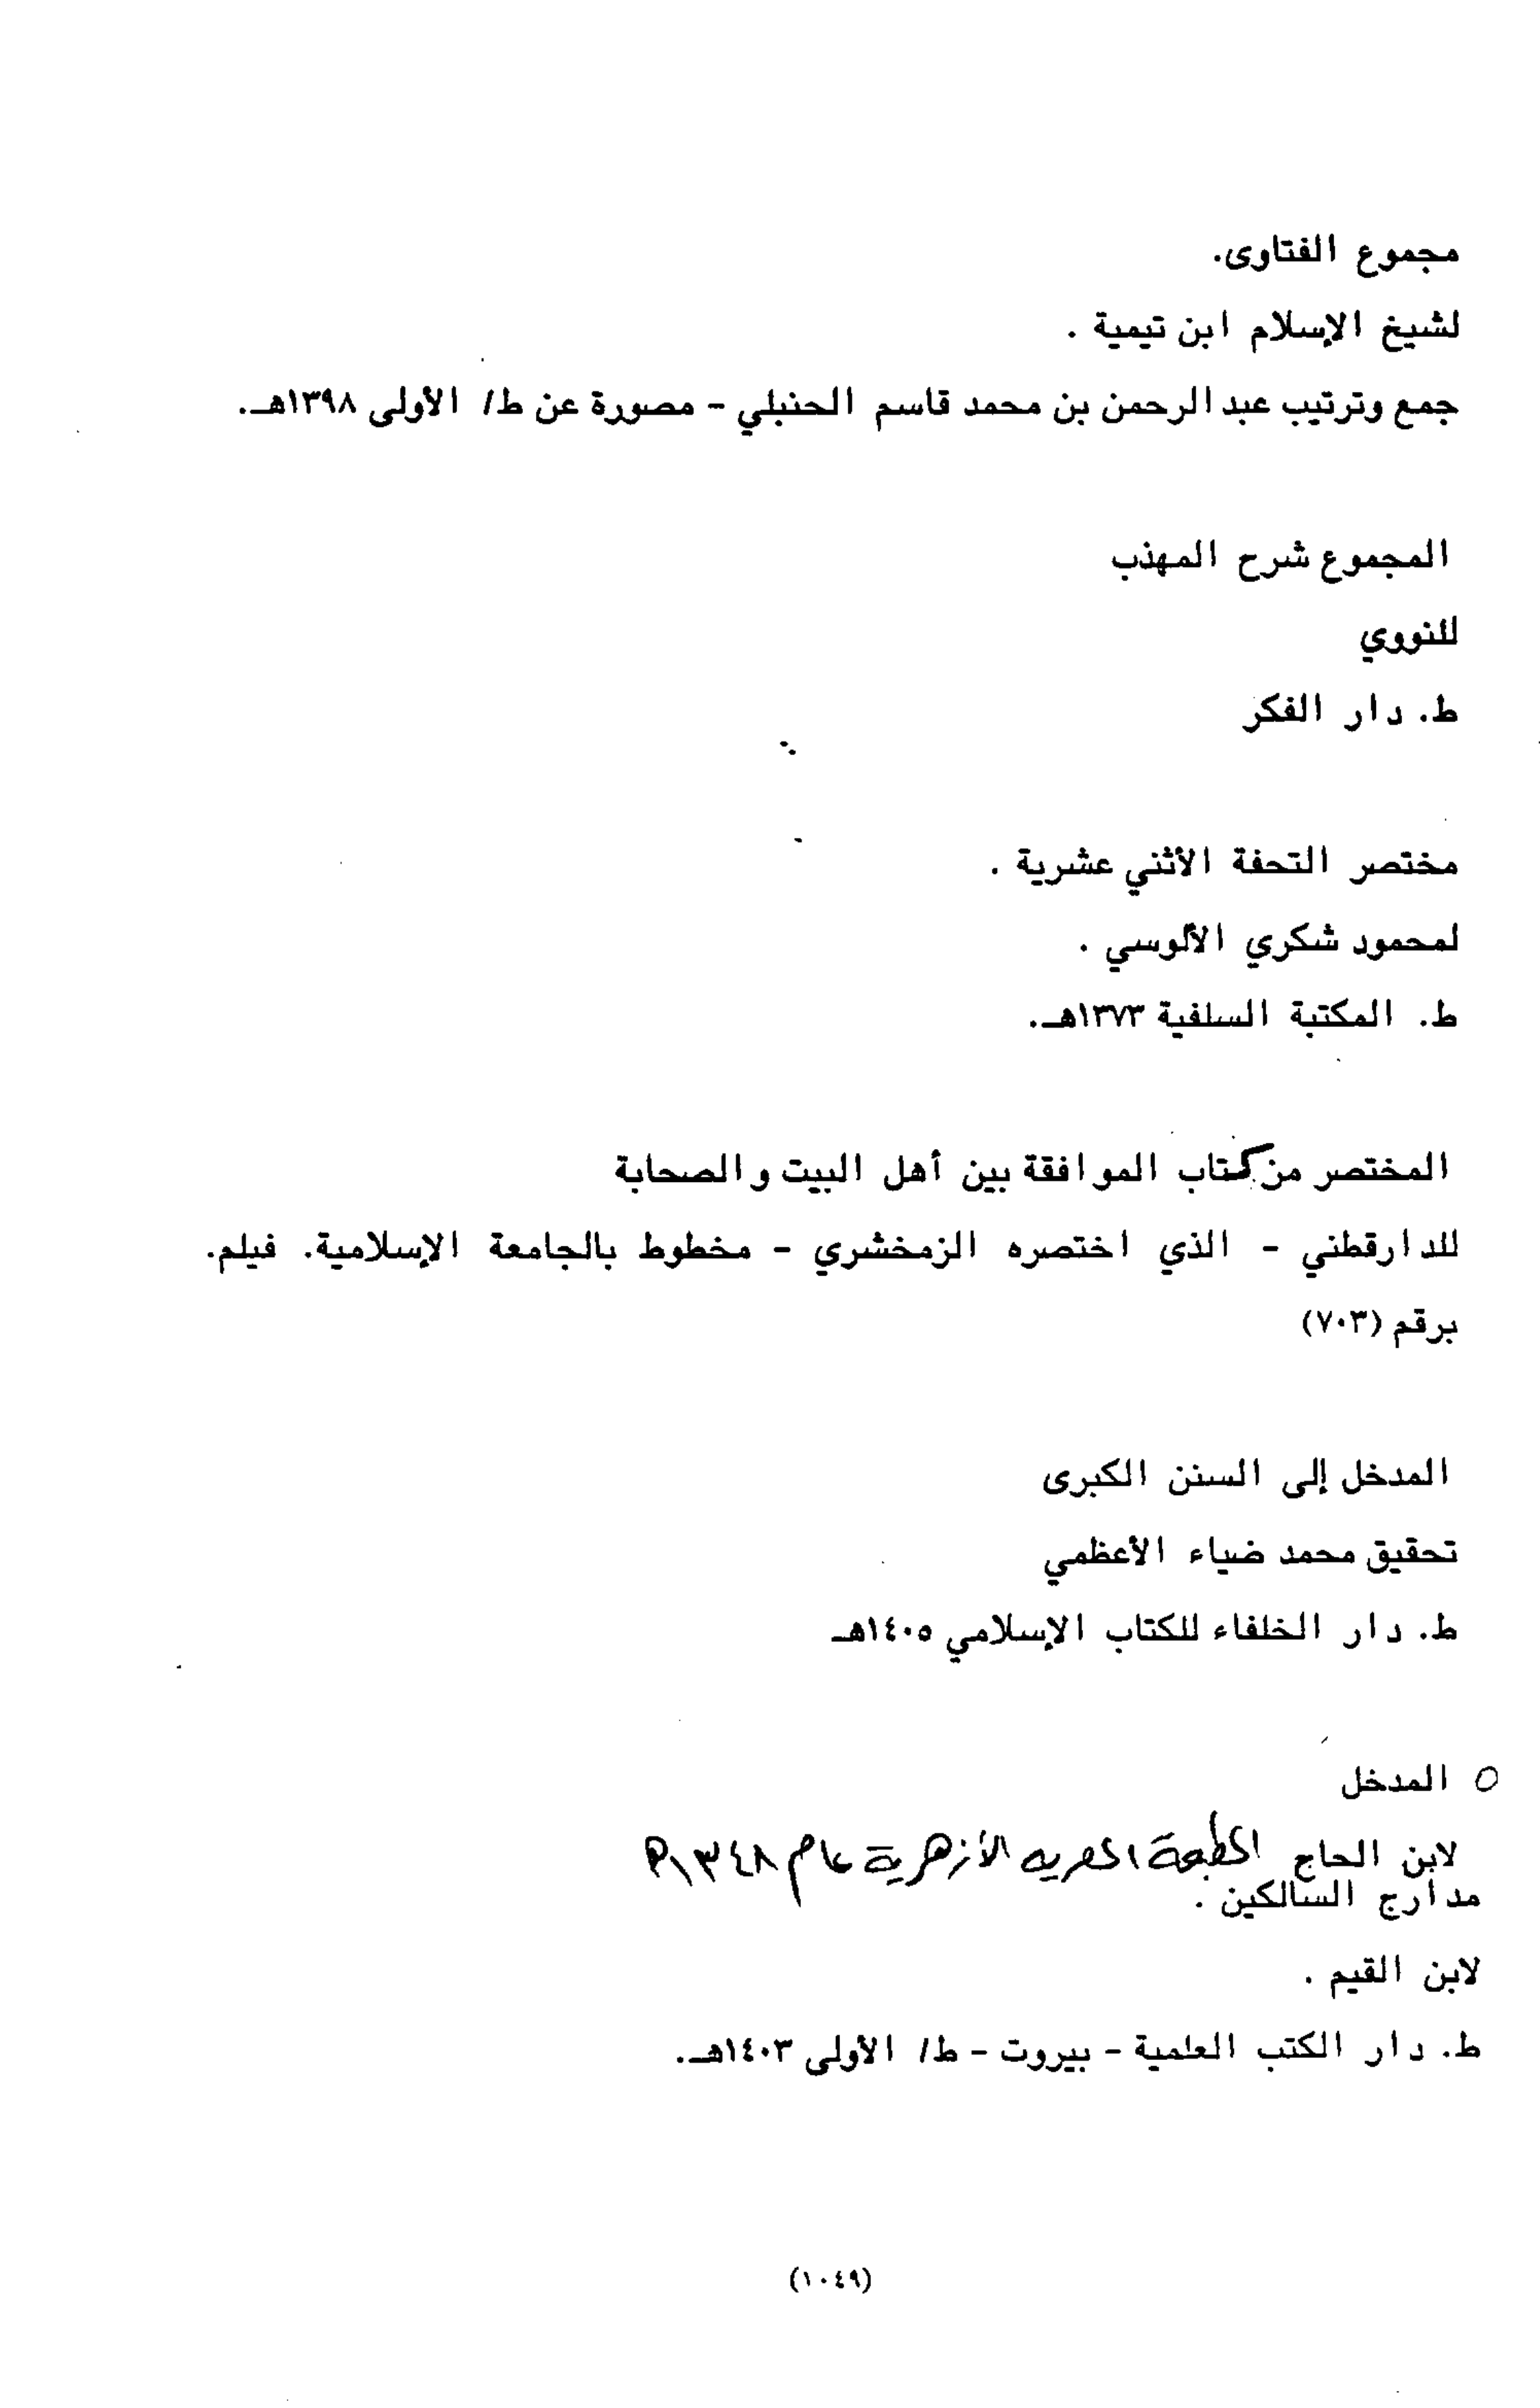 مجموع الفتاوى.
لشيخ الإسلام ابن تيمية .
جمع وترتيب عبد الرحمن بن محمد قاسم الحنبلي - مصورة عن ط/ الأولى ١٣٩٨هـ.
المجموع شرح المهذب
للنووي
ط. دار الفكر
مختصر التحفة الاثني عشرية .
لمحمود شكري الألوسي .
ط. المكتبة السلفية ١٣٧٣هـ.
المختصر من كتاب الموافقة بين أهل البيت والصحابة
للدارقطني - الذي اختصره الزمخشري - مخطوط بالجامعة الإسلامية. فيلم.
برقم (٧٠٣)
المدخل إلى السنن الكبرى
تحقيق محمد ضياء الأعظمي
ط. دار الخلفاء للكتاب الإسلامي ١٤٠٥هـ
○ المدخل
لابن الحاج المطبعة المصريه الأزهرية عام ١٣٤٨هـ
مدارج السالكين .
لابن القيم .
ط. دار الكتب العلمية - بيروت - ط/ الأولى ١٤٠٣هـ.
(١٠٤٩)